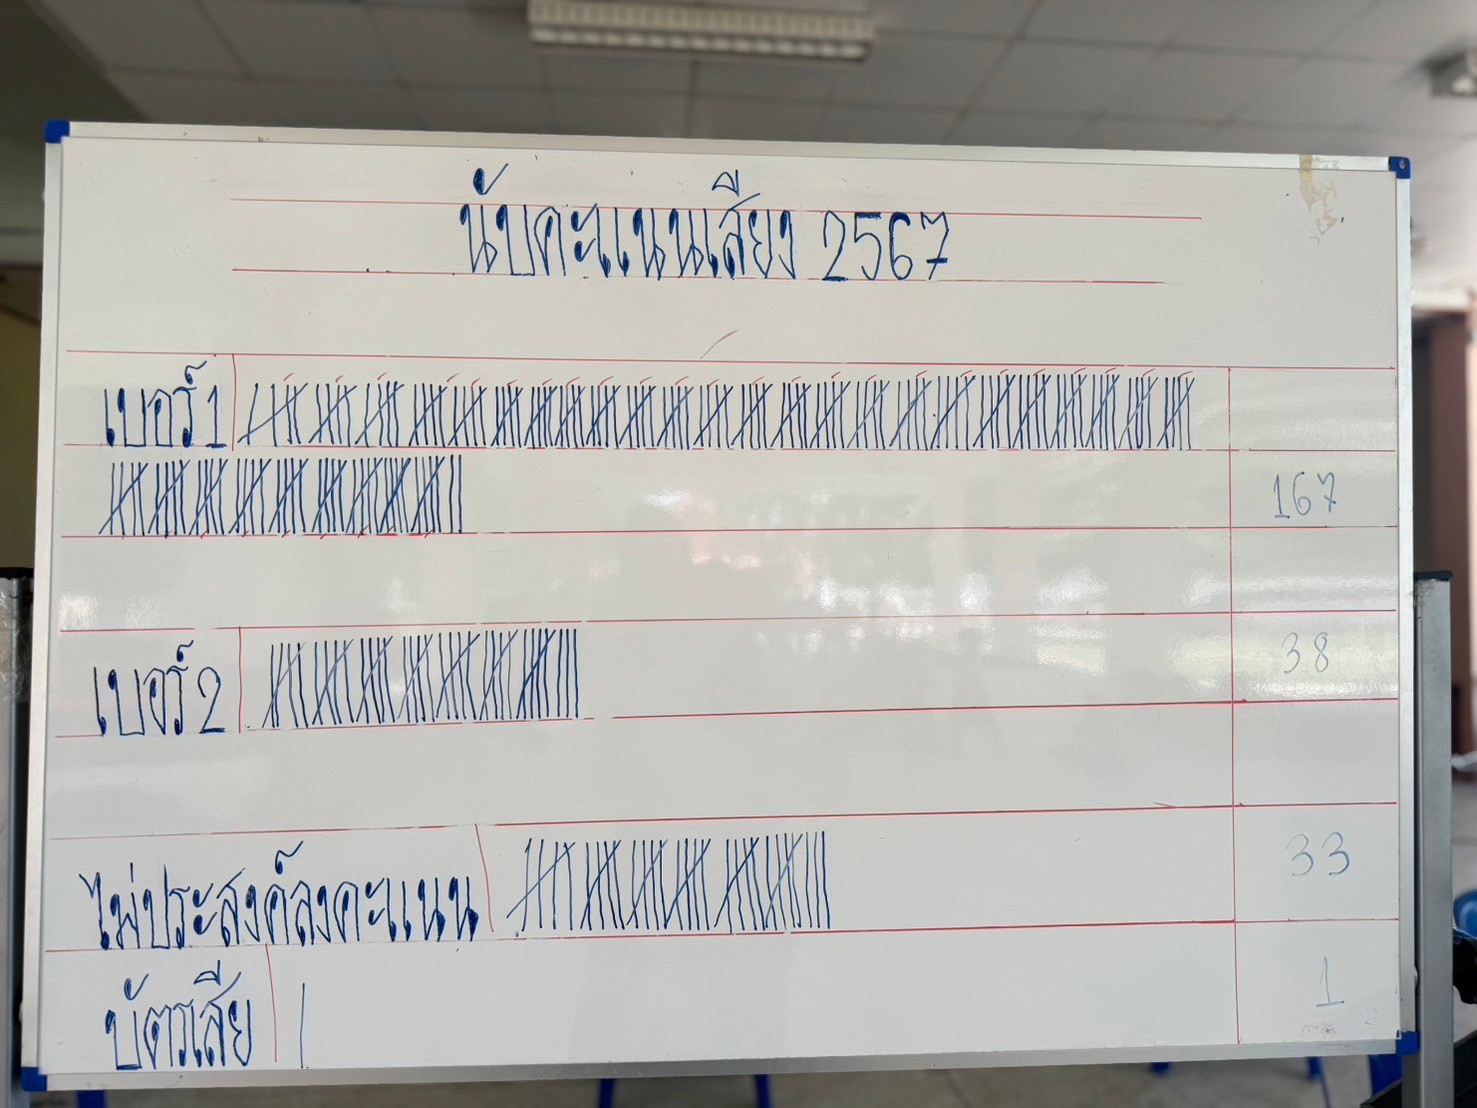 นับคะแนนเสียง 2567
เบอร์ 1
167
เบอร์ 2 38
ไม่ประสงค์ลงคะแนน 33
บัตรเสีย 1